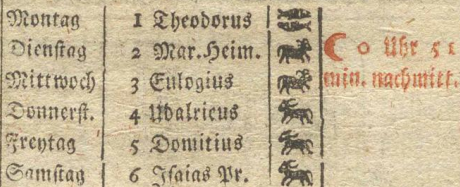 Montag 1 Theodorus
Dienstag 2 Mar.Heim. 0 Uhr 51
Mittwoch 3 Eulogius min. nachmitt.
Donnerst. 4 Udalricus
Freytag 5 Domitius
Samstag 6 Isaias Pr.